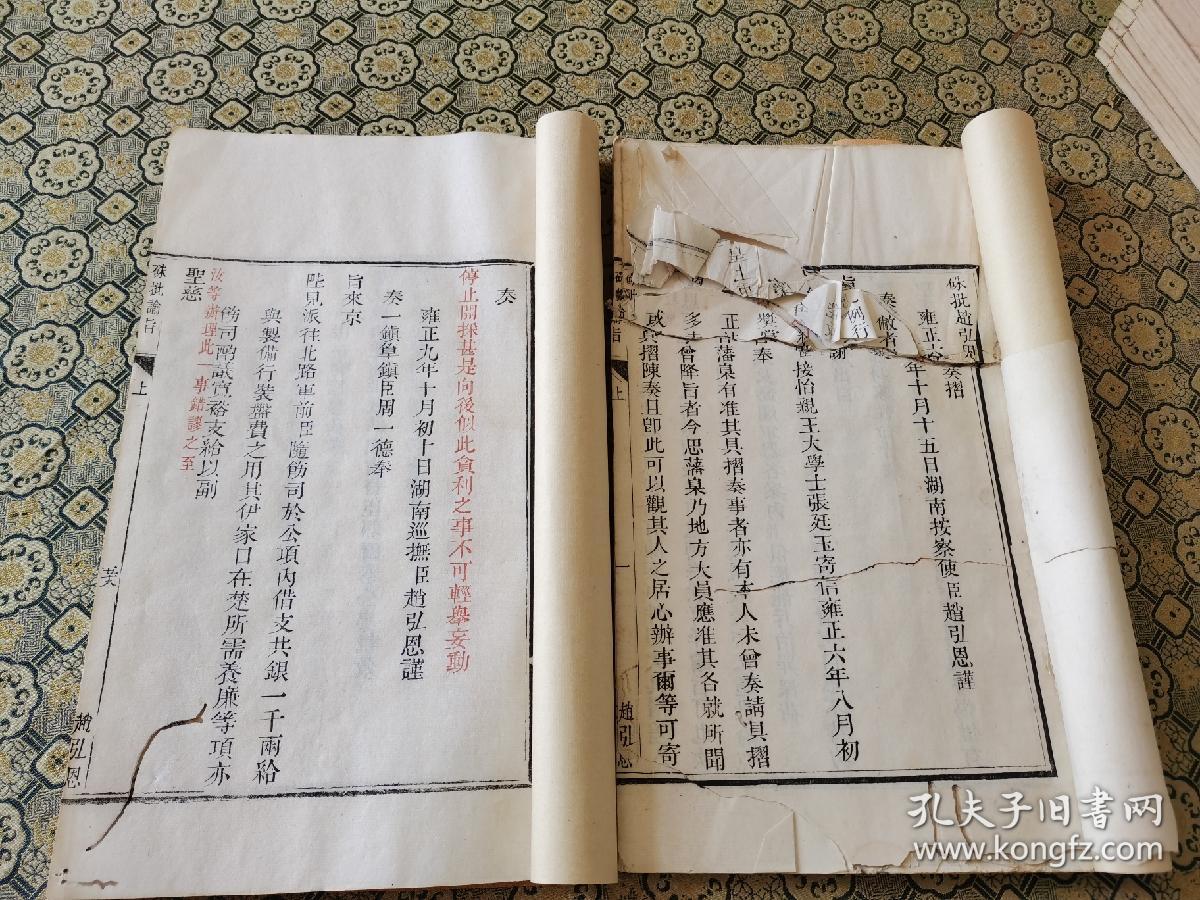 硃批趙弘恩奏摺
雍正六年十月十五日湖南按察使臣趙弘恩謹
奏
接怡親王大學士張廷玉寄信雍正六年八月初
奉
藩臬有准其具摺奏事者亦有本人未曾奏請具摺
曾降旨者今思藩臬乃地方大員應准其各就所聞
或具摺陳奏且卽此可以觀其人之居心辦事爾等可寄
上
一
趙弘恩
奏
停止開採甚是向後似此貪利之事不可輕舉妄動
雍正九年十月初十日湖南巡撫臣趙弘恩謹
奏一鎮筸鎮臣周一德奉
旨來京
陛見派往北路軍前臣隨飭司於公項內借支共銀一千兩給
與製備行裝盤費之用其伊家口在楚所需養廉等項亦
飭司酌議寬裕支給以副
汝等辦理此一事錯謬之至
聖慈
硃批諭旨
上
趙弘恩
孔夫子旧书网
www.kongfz.com